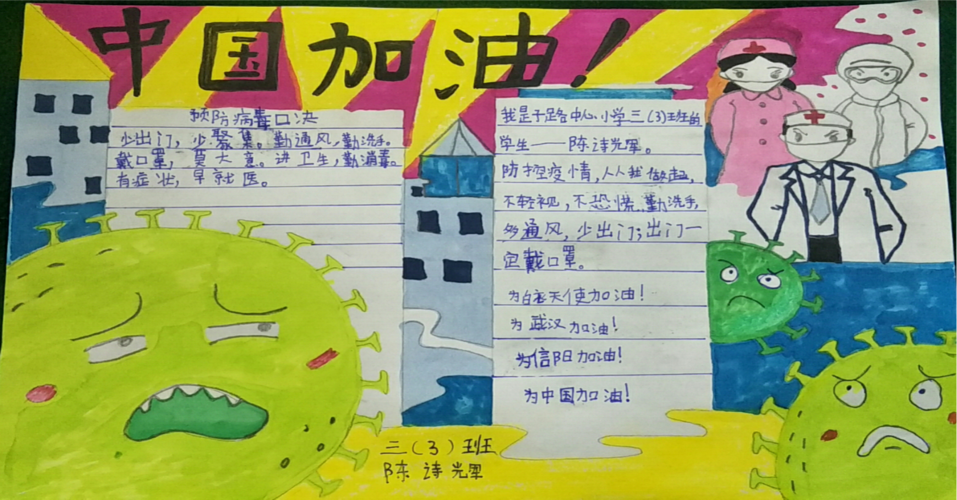 中国加油!
预防病毒口决
少出门，少聚集。勤通风，勤洗手。
戴口罩，莫大意。讲卫生，勤消毒。
有症状，早就医。
我是于路中心小学三(3)班的
学生——陈诗光军。
防控疫情，人人我做起，
不轻视，不恐慌，勤洗手，
多通风，少出门；出门一
定戴口罩。
为白衣天使加油！
为武汉加油！
为信阳加油！
为中国加油！
三(3)班
陈诗光军